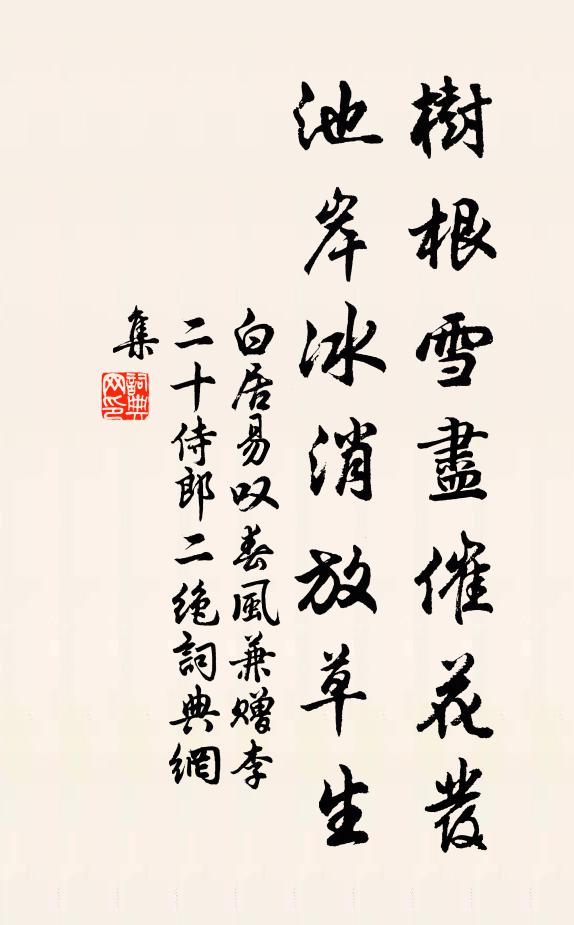 樹根雪盡催花發
池岸冰消放草生
白居易叹春風兼赠李
二十侍郎二绝詞典網
集
詞典网印